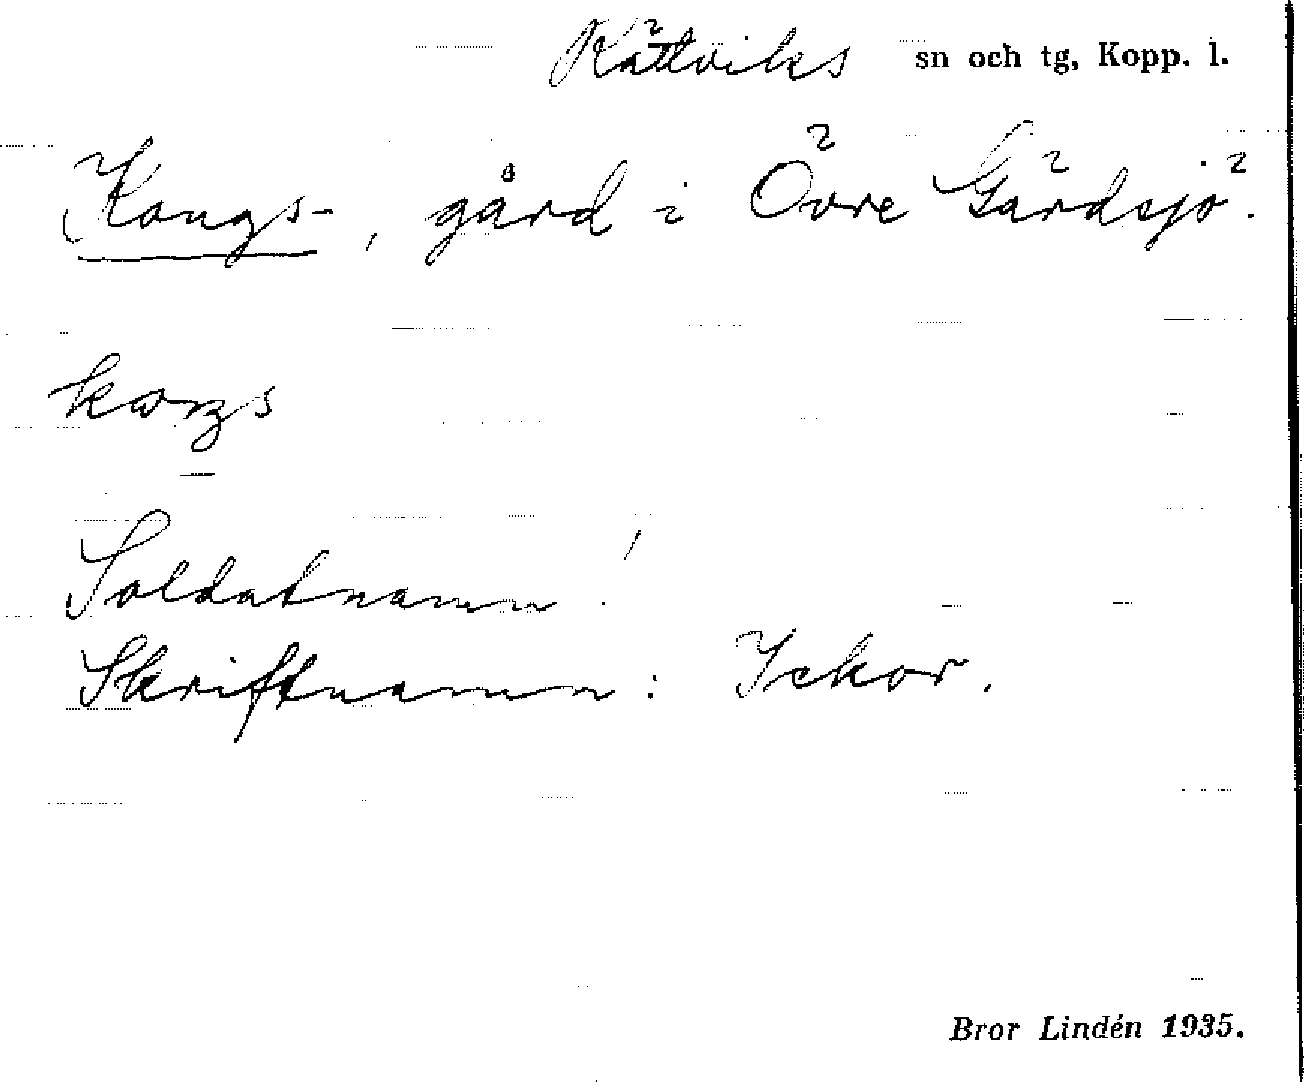 Rättviks sn och tg, Kopp. l.
Kongs-, gård i Övre Gärdsjö.
Soldatnamn!
Skriftnamn: Ickor.
Bror Lindén 1935.